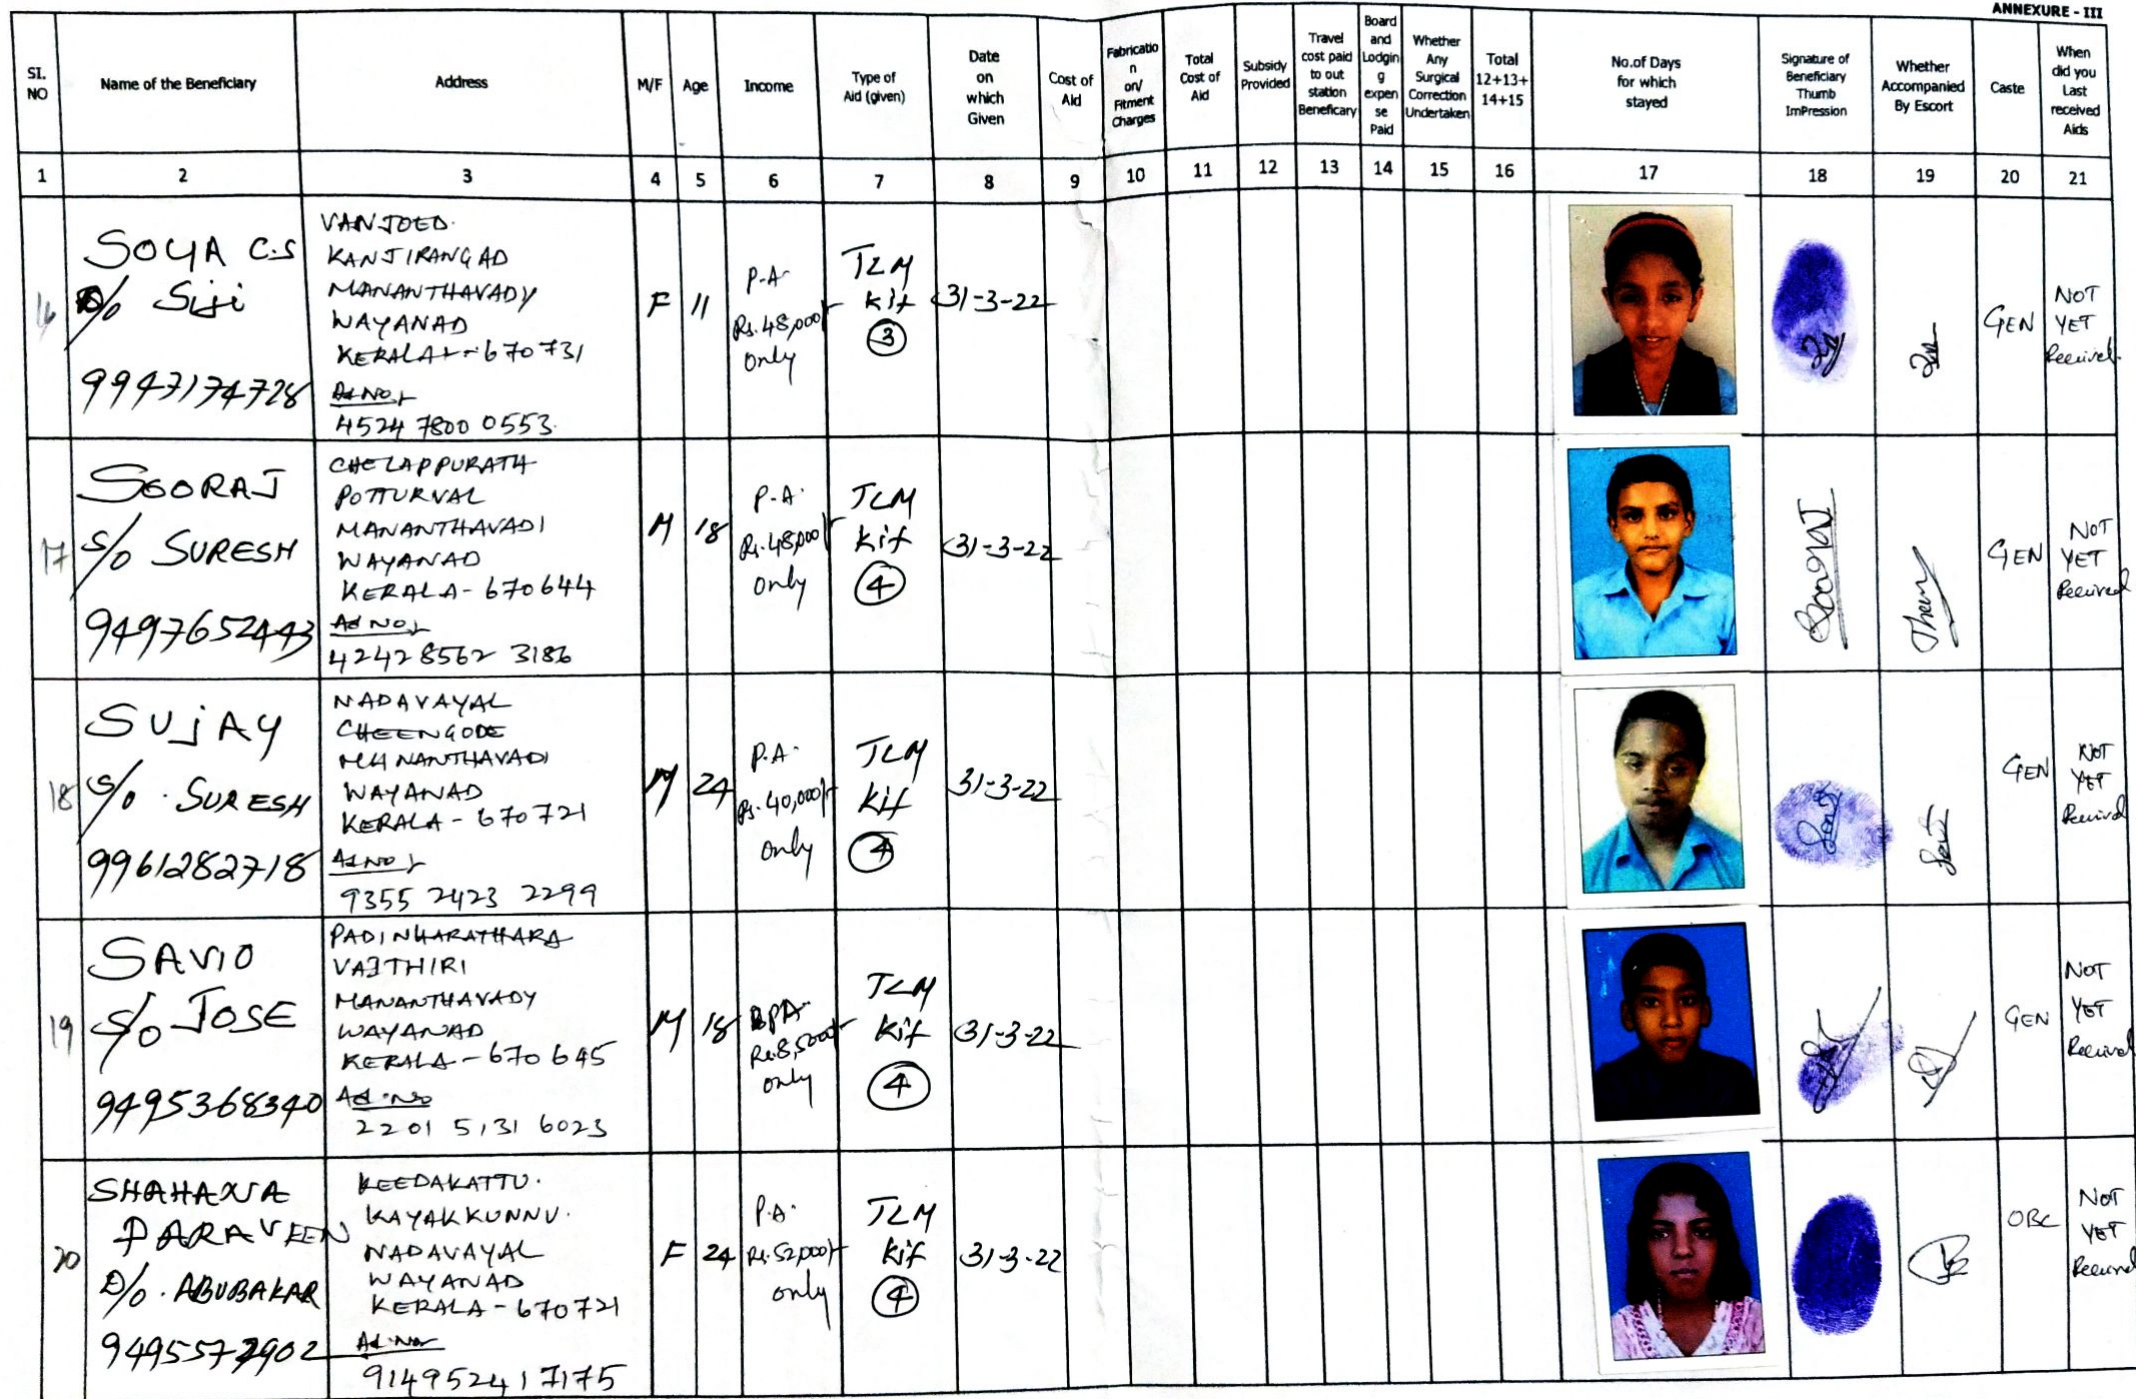 ANNEXURE - III
SI. NO
Name of the Beneficiary
Address
M/F
Age
Income
Type of
Aid (given)
Date
on
which
Given
Cost of
Aid
Fabricatio
n
on/
Fitment
Charges
Total
Cost of
Aid
Subsidy
Provided
Travel
cost paid
to out
station
Beneficary
Board
and
Lodgin
g
expen
se
Paid
Whether
Any
Surgical
Correction
Undertaken
Total
12+13+
14+15
No.of Days
for which
stayed
Signature of
Beneficiary
Thumb
ImPression
Whether
Accompanied
By Escort
Caste
When
did you
Last
received
Aids
1 2 3 4 5 6 7 8 9 10 11 12 13 14 15 16 17 18 19 20 21
16
SOYA C.S
D/o Siji
9947174728
VANJOED.
KANJIRANGAD
MANANTHAVADY
WAYANAD
KERALA - 670731
Ad No
4524 7800 0553
F
11
P.A
Rs. 48,000/-
only
TLM
kit
3
31-3-22
GEN
NOT
YET
Received
17
SOORAJ
S/o SURESH
9497652443
CHELAPPURATH
POTTURVAL
MANANTHAVADI
WAYANAD
KERALA - 670644
Ad No
4242 8562 3186
M
18
P.A.
Rs. 48,000/-
only
TLM
kit
4
31-3-22
SOORAJ
GEN
NOT
YET
Received
18
SUJAY
S/o. SURESH
9961282718
NADAVAYAL
CHEENGODE
MANANTHAVADI
WAYANAD
KERALA - 670721
Ad No
9355 2423 2299
M
24
P.A.
Rs. 40,000/-
only
TLM
kit
4
31-3-22
GEN
NOT
YET
Received
19
SAVIO
S/o JOSE
9495368340
PADINHARATHARA
VAITHIRI
MANANTHAVADY
WAYANAD
KERALA - 670645
Ad. No
2201 5131 6023
M
18
Rs. 8,500/-
only
TLM
kit
4
31-3-22
GEN
NOT
YET
Received
20
SHAHANA
PARAVEEN
D/o. ABUBAKAR
9495572902
KEEDAKATTU.
KAYAKKUNNU.
NADAVAYAL
WAYANAD
KERALA - 670721
Ad. No
9149 5241 7175
F
24
P.A.
Rs. 52,000/-
only
TLM
kit
4
31-3-22
OBC
NOT
YET
Received